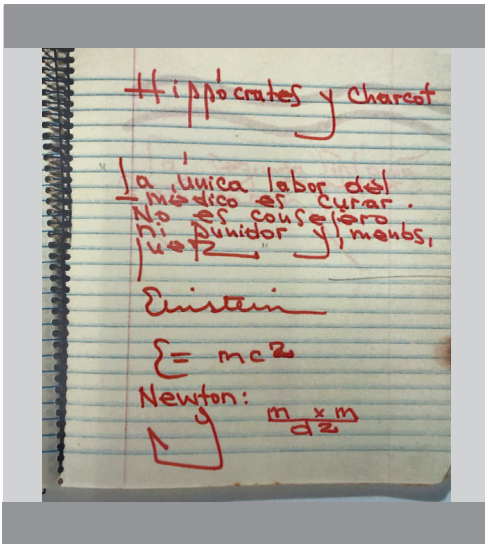 Hippócrates y Charcot
"La única labor del
médico es curar.
No es consejero
ni punidor y, menos,
juez"
Einstein
E = mc2
Newton:
m x m
d2